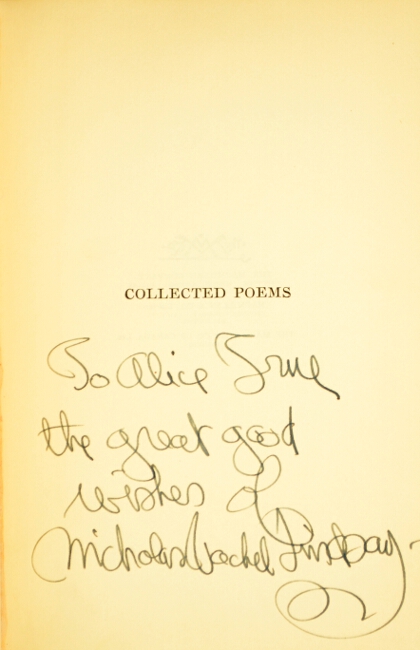 COLLECTED POEMS
To Alice True
the great good
wishes of
Nicholas Vachel Lindsay.